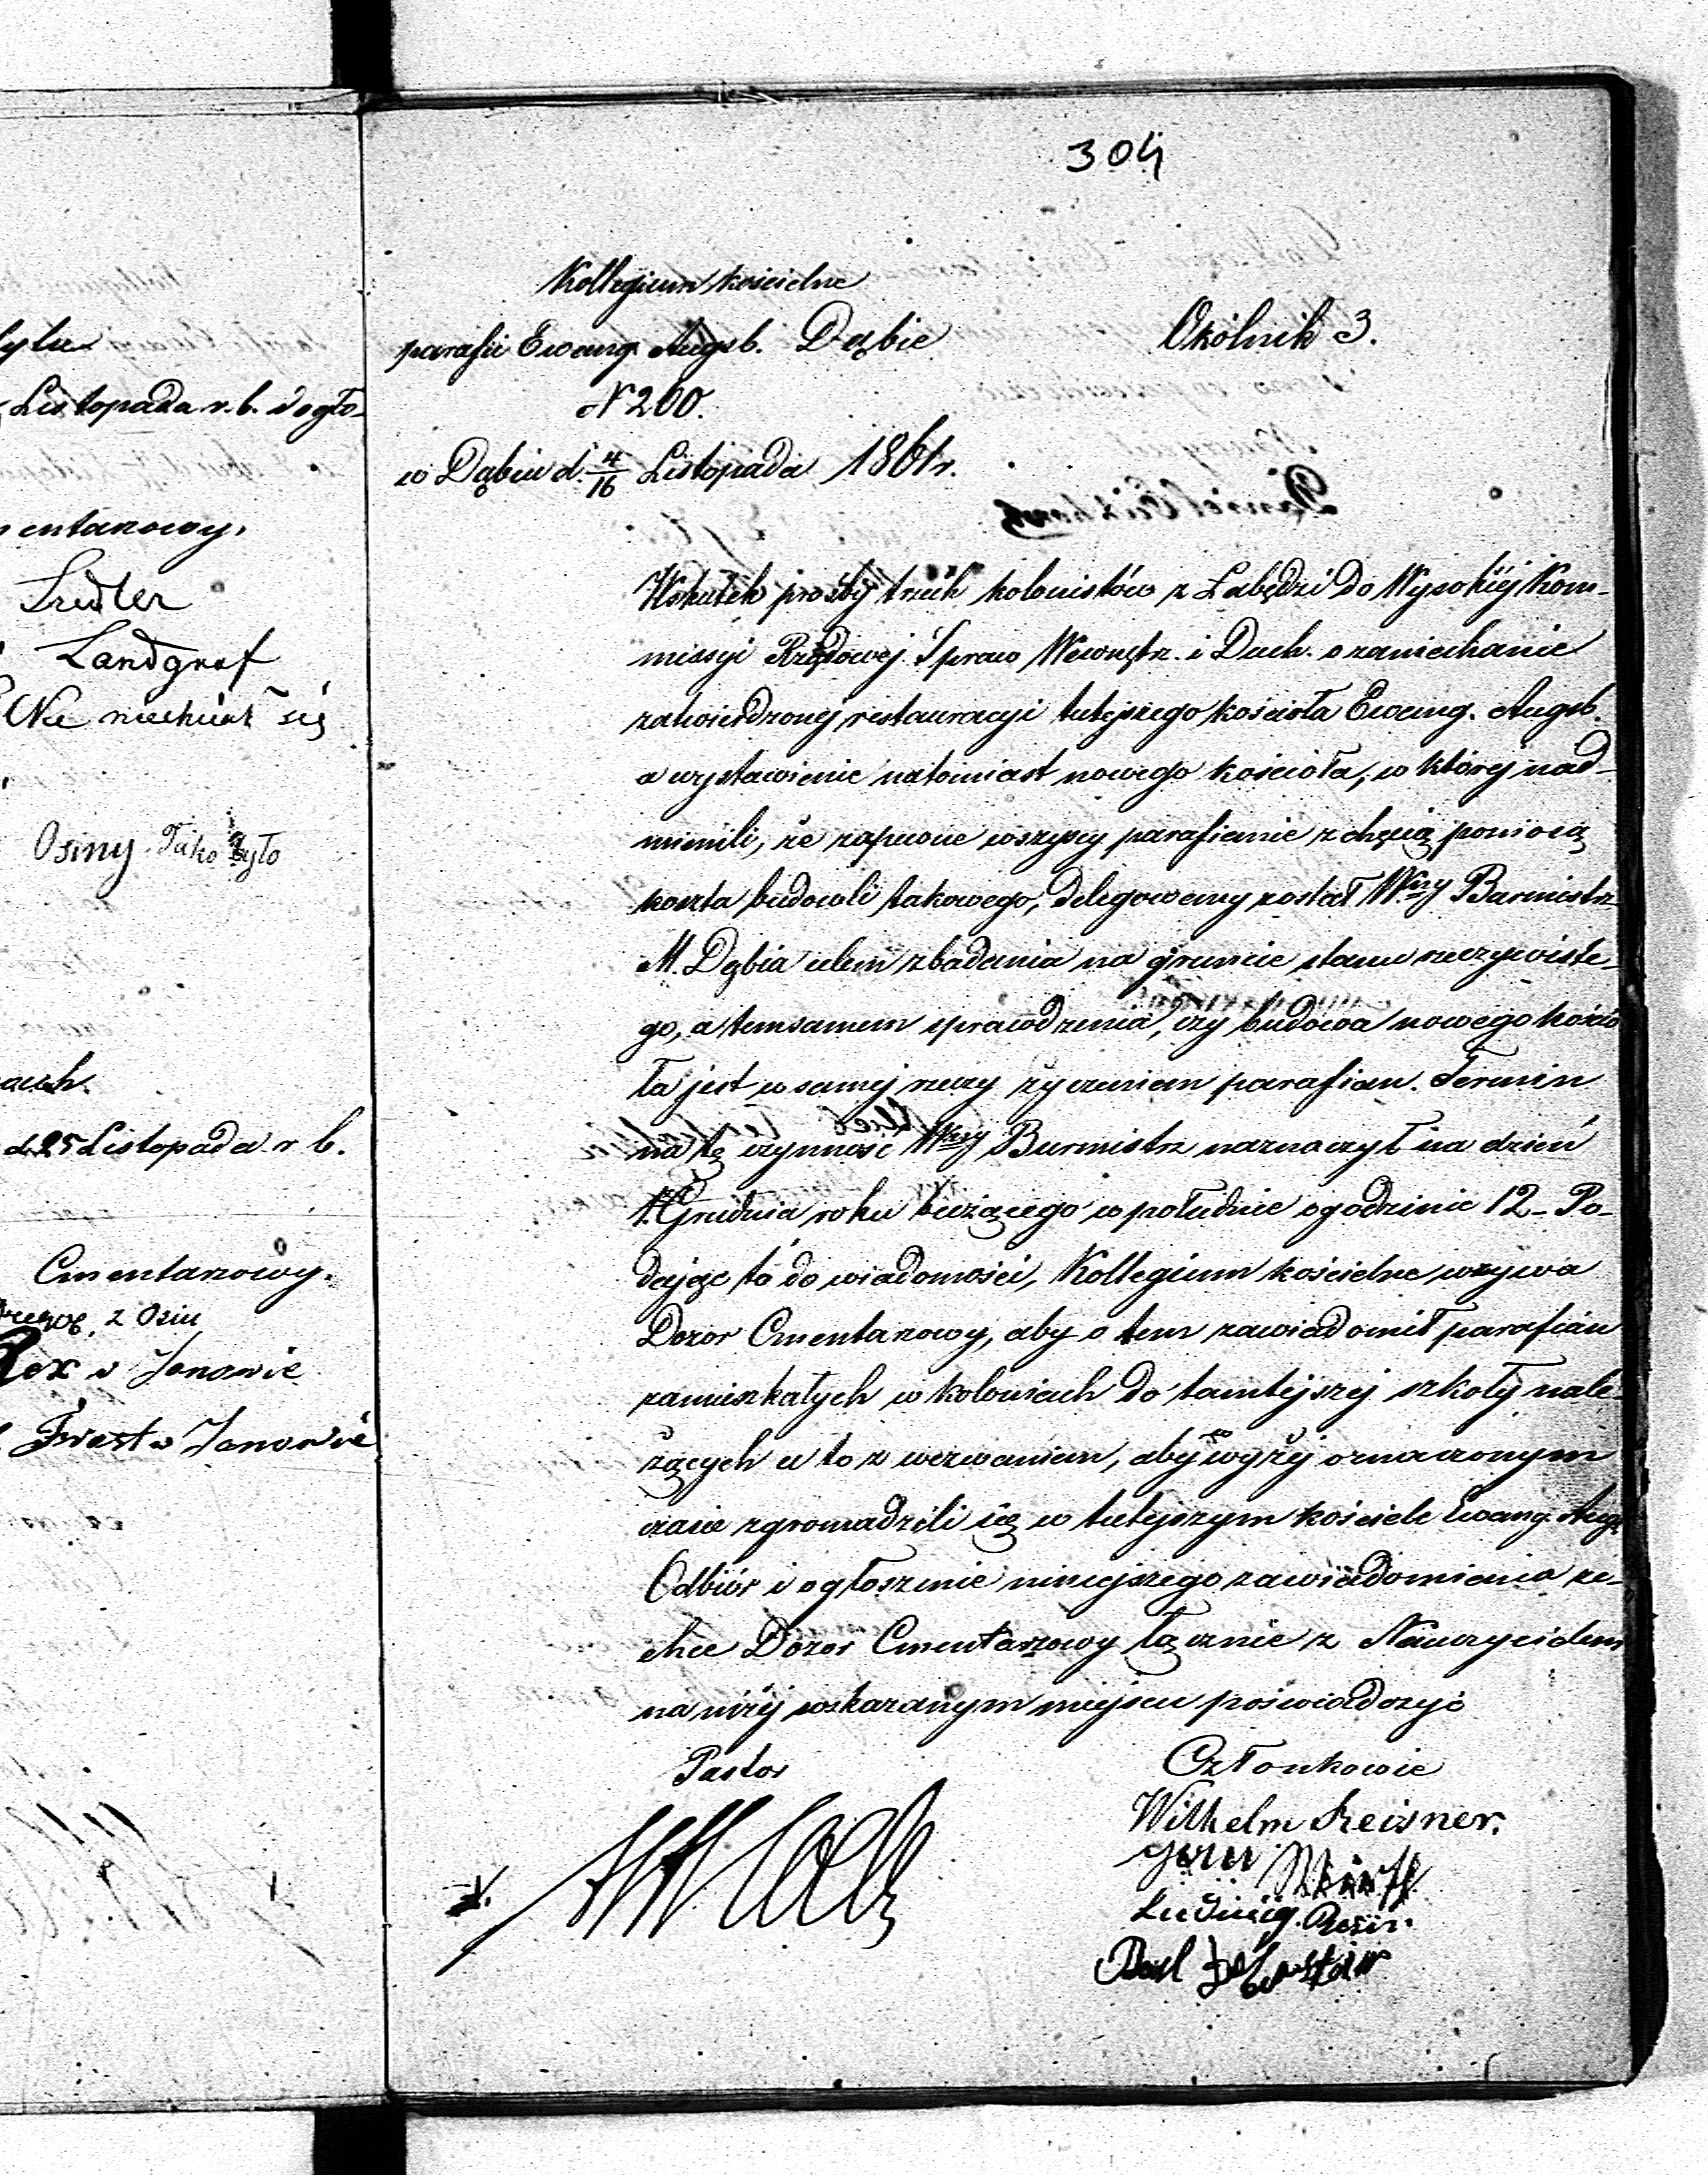 ylu
Listopada r. b. i ogło-
entarzowy.
Sredler
Landgraf
Nie niechciał się
Osiny Tako było
d. 25 Listopada r b.
Cmentarzowy.
z Osin
Rex w Janowie
Friast w Janowie
304
Kollegium kościelne
parafii Ewang Augsb. Dąbie
N 260.
w Dąbiu d. 4/16 Listopada 1861 r.
Okólnik 3.
Wskutek prośby trzech kolonistów z Łabędzi do Wysokiéj Kom-
missyi Rządowej Spraw Wewnętrz. i Duch. o zaniechanie
zatwierdzonej restauracyi tutejszego kościoła Ewang. Augsb.
a wystawienie natomiast nowego kościoła, w któréj nad-
mienili, że zapewne wszyscy parafianie z chęcią poniosą
koszta budowli takowego, delegowany został Wny Burmistrz
M. Dąbia celem zbadania na gruncie stanu rzeczywiste-
go, a temsamem sprawdzenia, czy budowa nowego kościo
ła jest w samej rzeczy życzeniem parafian. Termin
na tę czynność Wny Burmistrz naznaczył na dzień
1. Grudnia roku bieżącego w południe o godzinie 12 - Po-
dając to do wiadomości, Kollegium kościelne wzywa
Dozor Cmentarzowy, aby o tem zawiadomił parafian
zamieszkałych w koloniach do tamtejszej szkoły nale-
żących a to z wezwaniem, aby w wyżéj oznaczonym
czasie zgromadzili się w tutejszym kościele Ewang. Augs
Odbiór i ogłoszenie niniejszego zawiadomienia ze-
chce Dozor Cmentarzowy łącznie z Nauczycielem
na niżéj wskazanym miejscu poświadczyć
Pastor
Członkowie
Wilhelm Reisner.
Ludwig